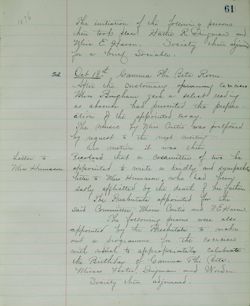 61
The initiation of the following persons
then took place Hattie K. Dugman and
Miss E. Hason. Society then adjourned
for a brief Sociable.
Oct 18th, Gamma Phi Beta Room
After the customary opening exercises
Miss Bingham read a select reading
as absence had prevented the preparation
of the appointed essay.
The music by Miss Curtis was postponed
by request to the next meeting
On motion it was then
Resolved that a committee of two be
appointed to write a kindly and sympathetic
Letter to Miss
letter to Miss
who had been
sadly afflicted by the death of her father
The President appointed for the
said Committee, Misses Curtis and
The following were also
appointed by the President to make
out a programme for the exercises
with which to appropriately celebrate
the Birthday of Gamma Phi Beta.
Misses Foster, Dugman and
Society then adjourned.